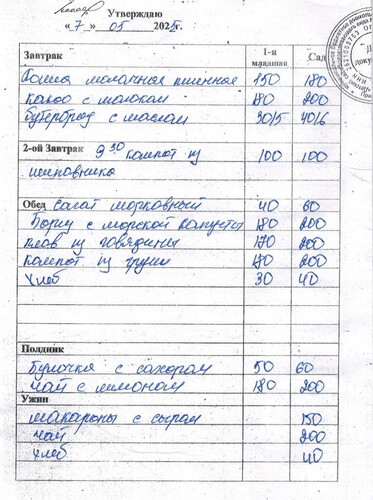 Утверждаю
« 7 » 05 2025г.
Завтрак 1-я младшая Сад
Каша молочная пшенная 150 180
Какао с молоком 180 200
Бутерброд с маслом 30/5 40/6
2-ой Завтрак 9 30 компот из 100 100
шиповника
Обед Салат морковный 40 60
Борщ с морской капусты 180 200
плов из говядины 170 200
компот из груши 180 200
Хлеб 30 40
Полдник
Булочка с сахаром 50 60
чай с лимоном 180 200
Ужин
макароны с сыром 150
чай 200
хлеб 40